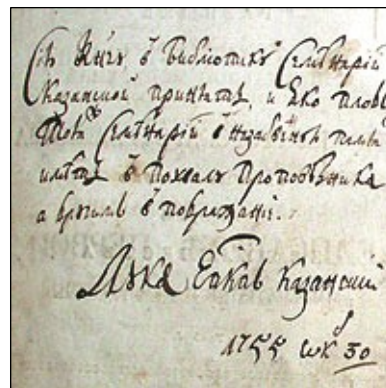 Сїю Кнігу в библїотику Семїнарїй
Казанской принять, и яко плодъ
Тоея Семїнарїй в незабвеннѣ памяти
имѣть в похвалу проповѣдника
а другимъ в подражанїе.
Лꙋка Епкпъ Казанскїй
1755 окт 30